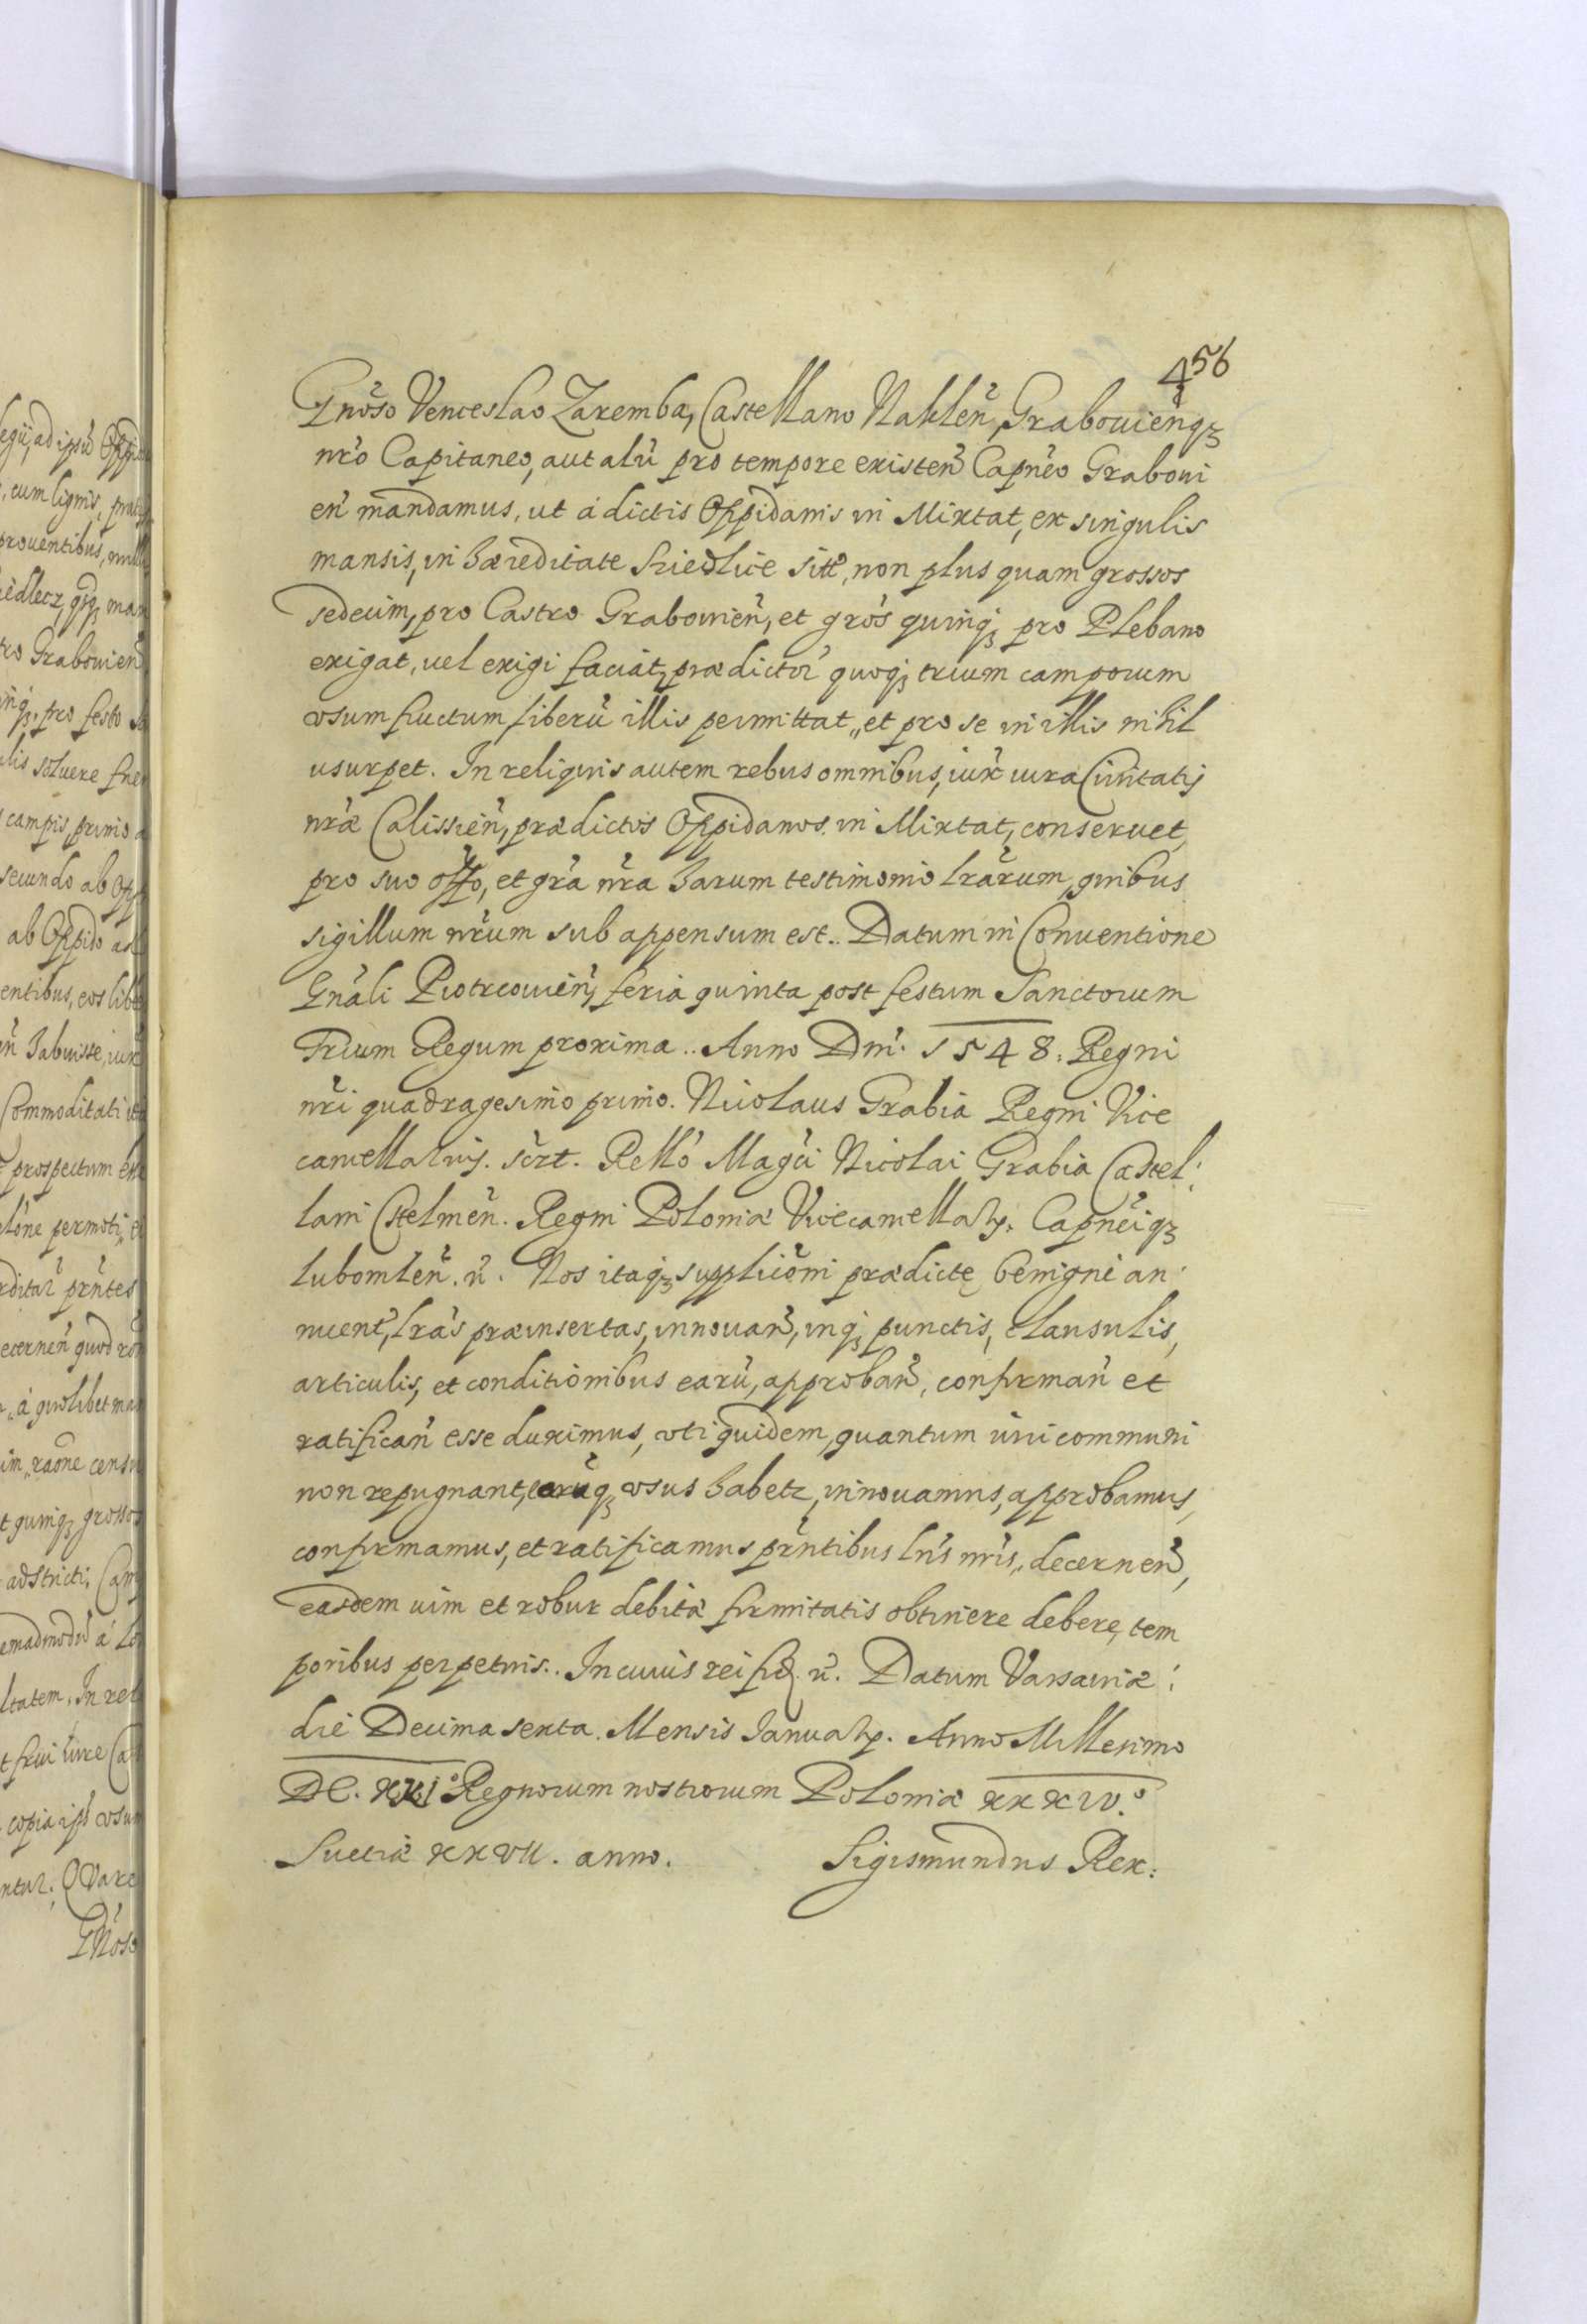 456
Gnõso Venceslao Zaremba, Castellano Naklen̄, Grabouien̄qꝫ
nrõ Capitaneo, aut aliũ pro tempore existen̄ Capnẽo Graboui
en̄ mandamus, ut á dictis Oppidanis in Mixtat, ex singulis
mansis, in hæreditate Siedlice sitę, non plus quam grossos
sedecim, pro Castro Grabouien̄, et gros̃ quinqꝫ pro Plebano
exigat, uel exigi faciat, prædictor̃ quoqꝫ trium camporum
vsum fructum liberũ illis permittat, et pro se in illis nihil
usurpet. In reliquis autem rebus omnibus, iux̃ iura Ciuitatis
nræ̃ Calissien̄, prædictos Oppidanos in Mixtat, conseruet,
pro suo offõ, et grã nrã harum testimonio lrãrum, quibus
sigillum nrũm sub appensum est. Datum in Conuentione
Gnãli Piotrcouien̄, feria quinta post festum Sanctorum
Trium Regum proxima. Anno Dnĩ. 1548. Regni
nrĩ quadragesimo primo. Nicolaus Grabia Regni Vice
cancellarius. scr̃t. Rellõ Magc̃i Nicolai Grabia Castel:
lani Chelmen̄. Regni Poloniæ Vicecancellarij. Capnẽiqꝫ
lubomlen̄. ñ. Nos itaqꝫ supplicõni prædictę benigne an:
nuent̃, lrãs præinsertas, innouan̄, inqꝫ punctis, clausulis,
articulis, et conditionibus earũ, approban̄, confirman̄ et
ratifican̄ esse duximus, vti quidem, quantum iuri communi
non repugnant, earũqꝫ vsus habetꝛ, innouamus, approbamus,
confirmamus, et ratificamus prñtibus lrĩs nrĩs, decernen̄,
easdem uim et robur debitæ firmitatis obtinere debere, tem
poribus perpetuis. In cuius rei fidꝫ ñ. Datum Varsauiæ:
die Decima sexta. Mensis Januarij. Anno Millesimo
DC. XXIº Regnorum nostrorum Poloniæ XXXIV.º
Suetiæ XXVII. anno. Sigismundus Rex.